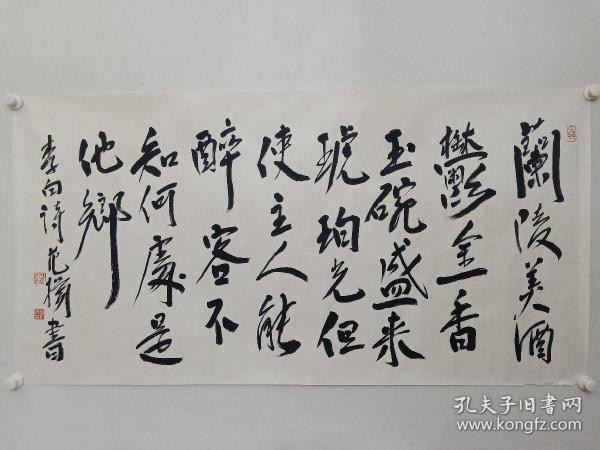 蘭陵美酒
鬱金香
玉碗盛来
琥珀光但
使主人能
醉客不
知何處是
他鄉
李白詩范書
孔夫子旧书网
www.kongfz.com